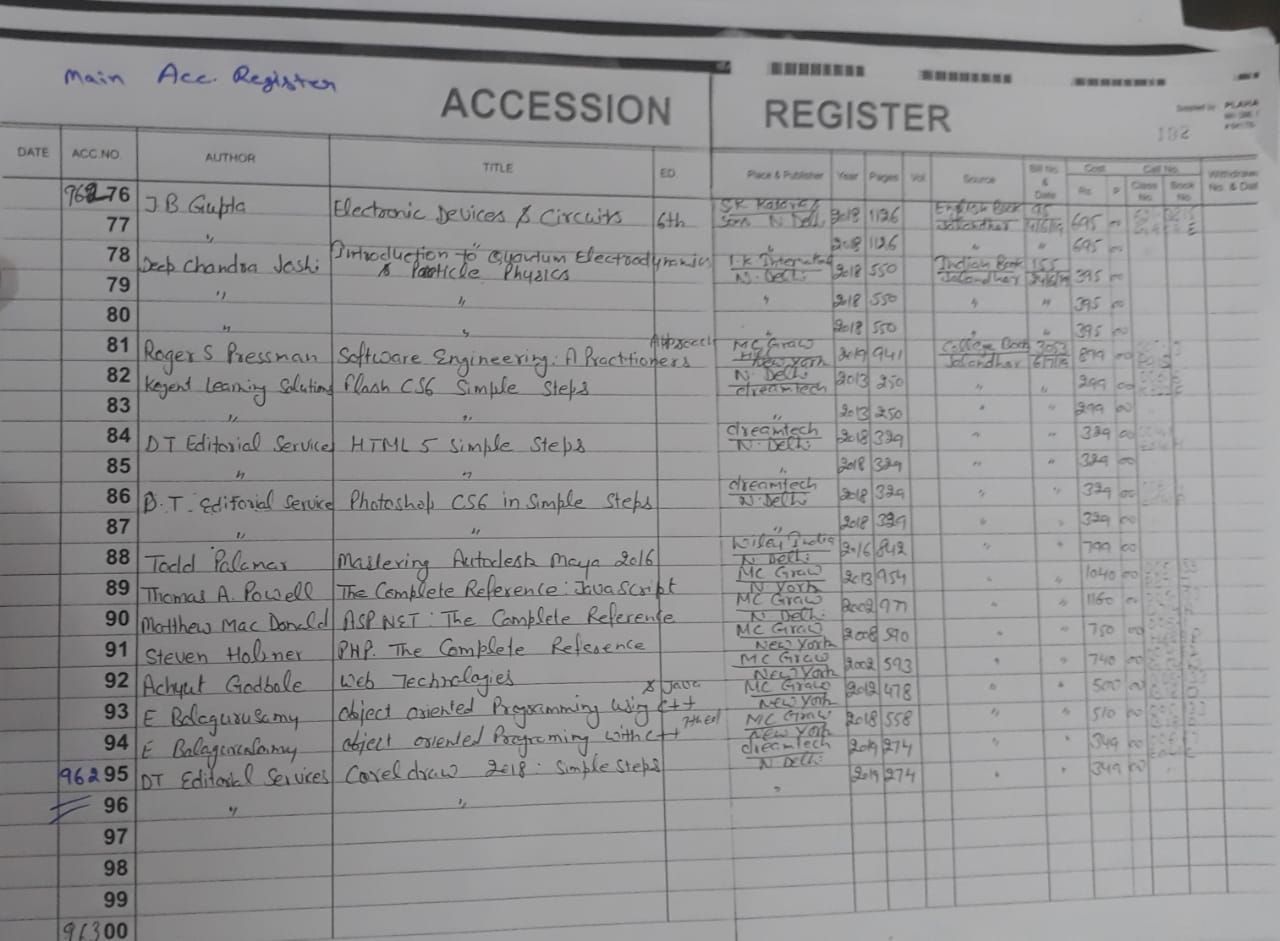 Main Acc. Register
ACCESSION REGISTER
192
DATE ACC.NO. AUTHOR TITLE ED. Place & Publisher Year Pages Vol Source Bill No. & Date Cost Rs. P Call No. Class No. Book No. Withdrawn No. & Date
96276 J B Gupta Electronic Devices & Circuits 6th N Delhi 2018 1126 English Book Jalandhar 695 00
77 " " " 2018 1126 " " 695 00
78 Deep Chandra Joshi Introduction to Quantum Electrodynamics & Particle Physics N. Delhi 2018 550 Indian Book Jalandhar 155 395 00
79 " " " 2018 550 " " 395 00
80 " " " 2018 550 " " 395 00
81 Roger S Pressman Software Engineering: A Practitioners Approach MC Graw New York 2019 941 College Book Jalandhar 3053 00
82 Kogent Learning Solutions Flash CS6 Simple Steps N. Delhi dreamtech 2013 250 " " 299 00
83 " " " 2013 250 " " 299 00
84 DT Editorial Services HTML 5 Simple Steps dreamtech N. Delhi 2018 329 " " 329 00
85 " " " 2018 329 " " 329 00
86 D.T. Editorial Service Photoshop CS6 in Simple Steps dreamtech N. Delhi 2018 329 " " 329 00
87 " " " 2018 329 " " 329 00
88 Todd Palamar Mastering Autodesk Maya 2016 Wiley India N Delhi 2016 842 " " 799 00
89 Thomas A. Powell The Complete Reference: JavaScript MC Graw N York 2013 954 " " 1040 00
90 Matthew Mac Donald ASP NET: The Complete Reference MC Graw N Delhi 2002 971 " " 1160
91 Steven Holzner PHP: The Complete Reference MC Graw New York 2008 590 " " 750 00
92 Achyut Godbole Web Technologies MC Graw New York 2002 593 " " 740 00
93 E Balagurusamy Object oriented Programming using C++ & Java MC Graw New York 2012 478 " " 500 00
94 E Balagurusamy object oriented Programing with C++ 7th ed MC Graw New York 2018 558 " " 510 00
96295 DT Editorial Services Corel draw 2018: Simple Steps dreamtech N Delhi 2019 274 " " 349 00
96 " " " 2019 274 " " 349 00
97
98
99
96300